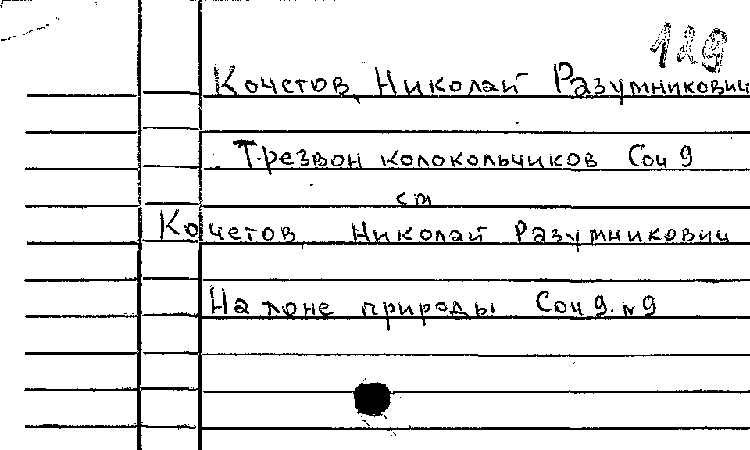 129
Кочетов, Николай Разумникович
Трезвон колокольчиков Соч 9
см
Кочетов, Николай Разумникович
На лоне природы Соч 9. № 9